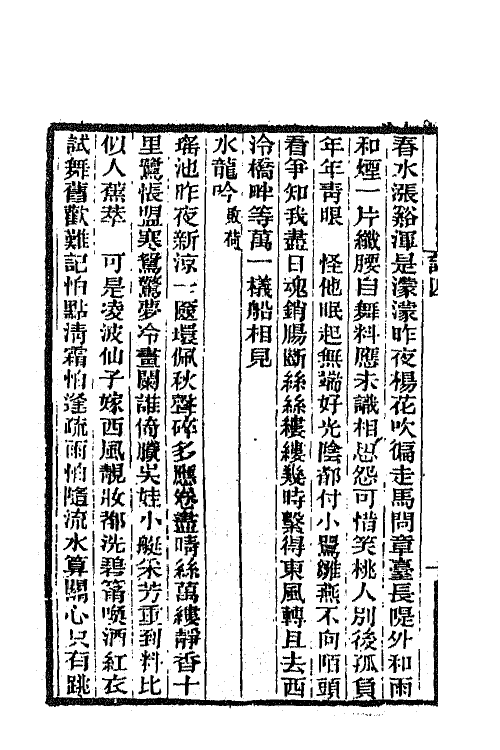 春水漲谿渾是濛濛昨夜楊花吹徧走馬問章臺長隄外和雨
和煙一片纖腰自舞料應未識相思怨可惜笑桃人別後孤負
年年青眼　怪他眠起無端好光陰都付小鶯雛燕不向陌頭
看爭知我盡日魂銷腸斷絲絲縷縷幾時繫得東風轉且去西
泠橋畔等萬一檥船相見
水龍吟敗荷
瑤池昨夜新涼一匳環佩秋聲碎多應卷盡晴絲萬縷靜香十
里鷺悵盟寒鴛驚夢冷畫闌誰倚賸吳娃小艇采芳重到料比
似人蕉萃　可是凌波仙子嫁西風靚妝都洗碧筩喚酒紅衣
試舞舊歡難記怕點清霜怕逢疏雨怕隨流水算關心只有跳